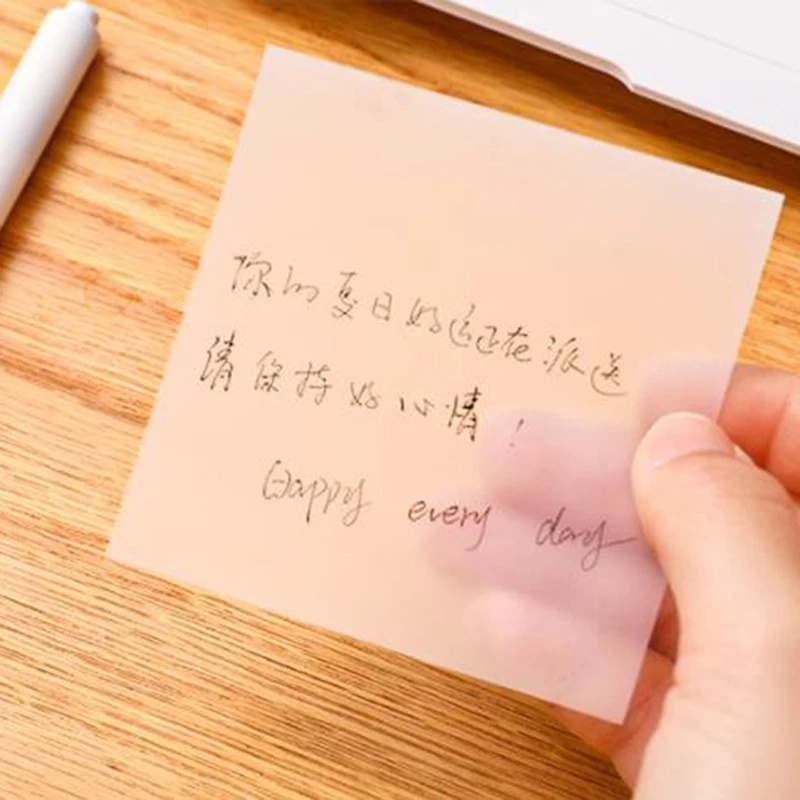 你的夏日好运正在派送
请保持好心情！
Happy every day